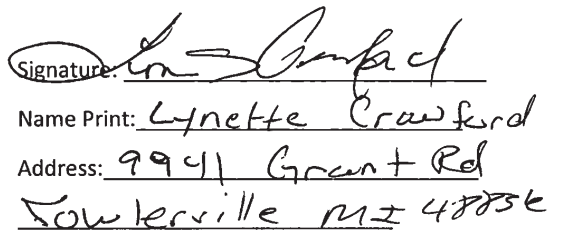 Signature:
Name Print: Lynette Crawford
Address: 9941 Grant Rd
Fowlerville MI 48836